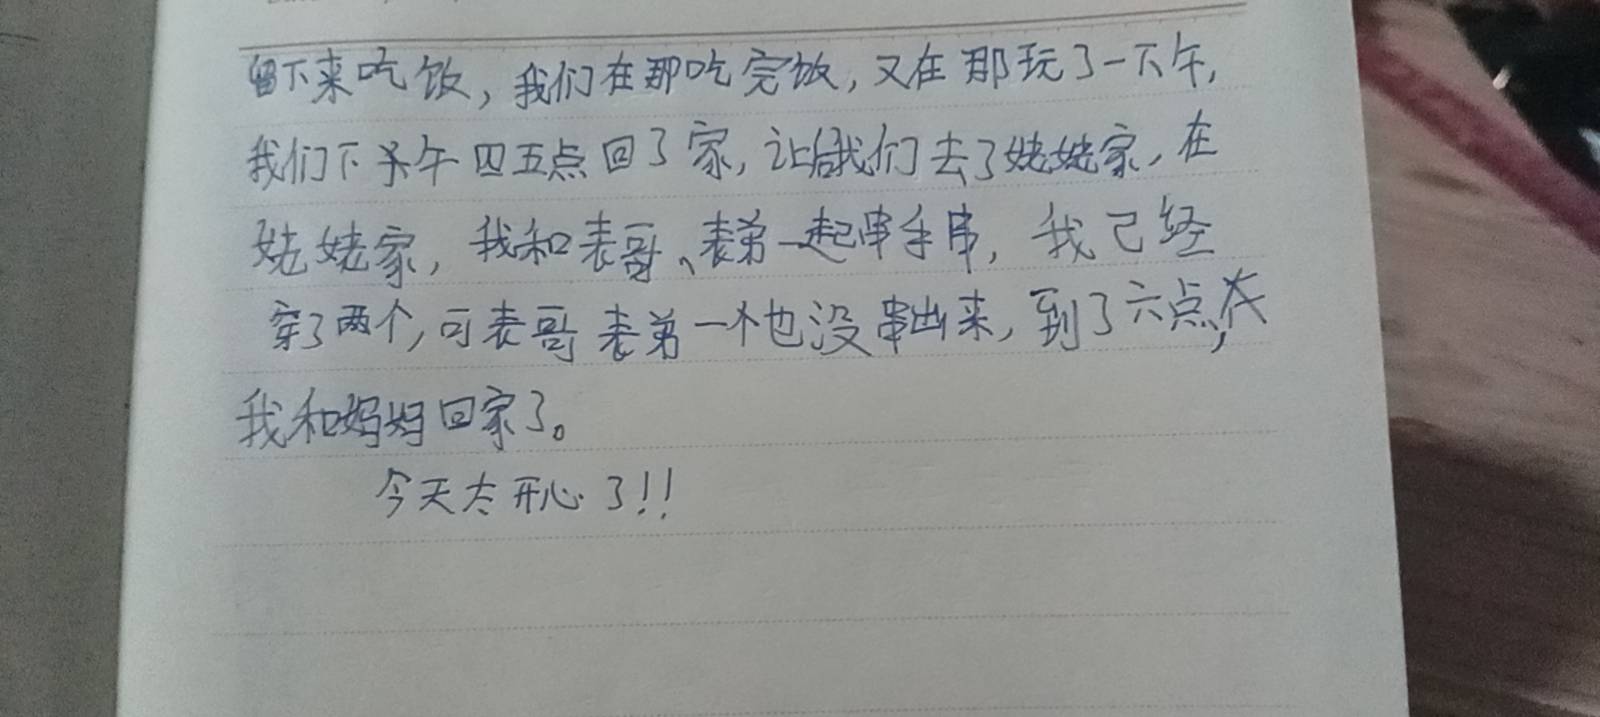 留下来吃饭，我们在那吃完饭，又在那玩了一下午，
我们下午四五点回了家，让我们去了姥姥家，在
姥姥家，我和表哥、表弟一起串手串，我己经
穿了两个，可表哥表弟一个也没串出来，到了六点，
我和妈妈回家了。
今天太开心了！！